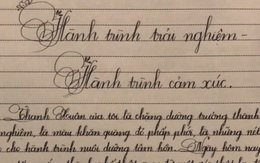 Hành trình trải nghiệm -
Hành trình cảm xúc.
Thanh Xuân của tôi là chặng đường trưởng thành
nghiệm, là màu khăn quàng đỏ phấp phới, là những nét
cho hành trình nuôi dưỡng tâm hồn. Ngày hôm nay